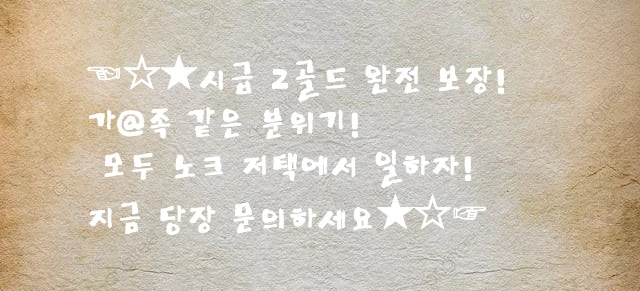 ☜☆★시급 2골드 완전 보장!
가@족 같은 분위기!
모두 노크 저택에서 일하자!
지금 당장 문의하세요★☆☞